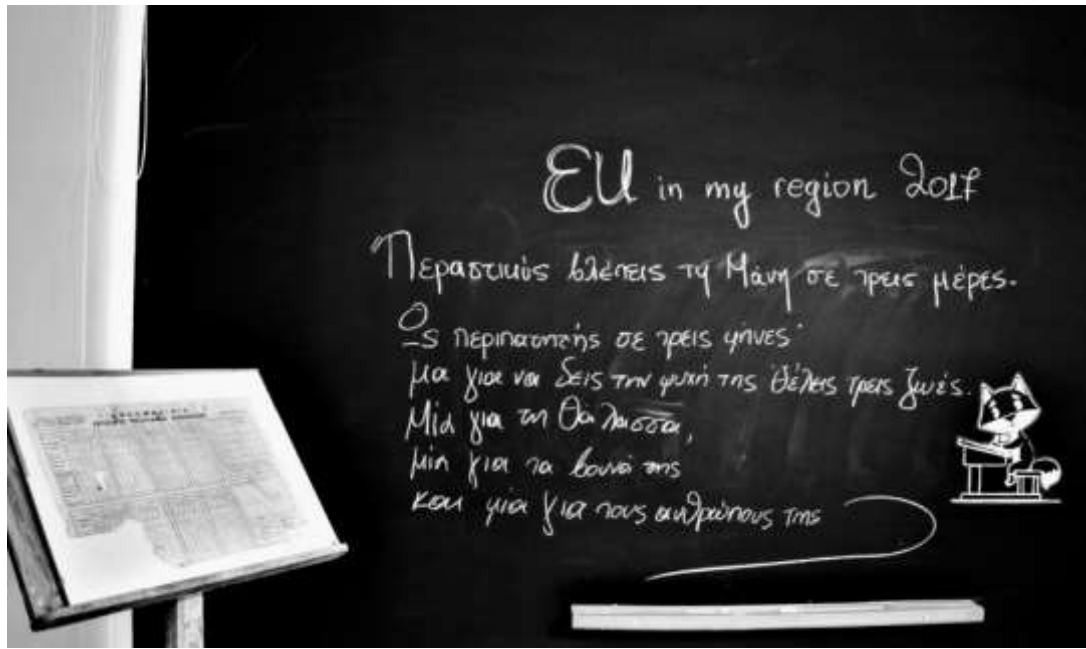 EU in my region 2017
"Περαστικός βλέπεις τη Μάνη σε τρεις μέρες.
Ως περιπατητής σε τρεις μήνες·
μα για να δεις την ψυχή της θέλεις τρεις ζωές.
Μία για τη θάλασσα,
μία για τα βουνά της
και μία για τους ανθρώπους της